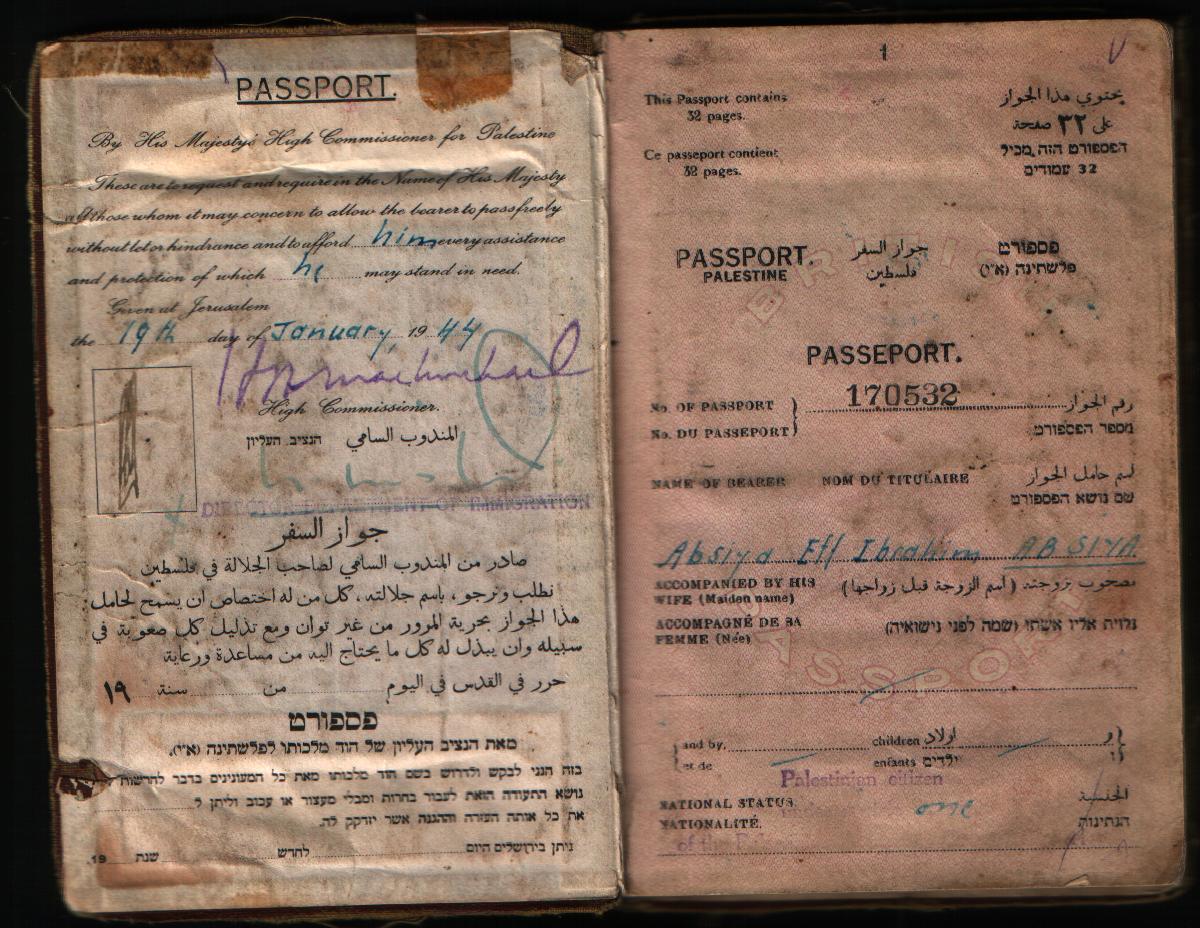 PASSPORT.
By His Majesty's High Commissioner for Palestine
These are to request and require in the Name of His Majesty
all those whom it may concern to allow the bearer to pass freely
without let or hindrance and to afford him every assistance
and protection of which he may stand in need.
Given at Jerusalem
the 19th day of January, 1944
High Commissioner.
הנציב העליון المندوب السامي
DIRECTOR DEPARTMENT OF IMMIGRATION
جواز السفر
صادر من المندوب السامي لصاحب الجلالة في فلسطين
نطلب ونرجو، باسم جلالته، كل من له اختصاص ان يسمح لحامل
هذا الجواز بحرية المرور من غير توان ومع تذليل كل صعوبة في
سبيله وان يبذل له كل ما يحتاج اليه من مساعدة ورعاية
حرر في القدس في اليوم من سنة ١٩
פספורט
מאת הנציב העליון של הוד מלכותו לפלשתינה (א״י).
בזה הנני לבקש ולדרוש בשם הוד מלכותו מאת כל המעונינים בדבר להרשות
נושא התעודה הזאת לעבור בחרות ומבלי מעצור או עכוב וליתן ל
את כל אותה העזרה וההגנה אשר יזדקק לה.
ניתן בירושלים היום לחדש שנת 19.
1
This Passport contains
32 pages.
يحتوي هذا الجواز
على ٣٢ صفحة
Ce passeport contient
32 pages.
הפספורט הזה מכיל
32 עמודים
PASSPORT. جواز السفر פספורט
PALESTINE فلسطين פלשתינה (א״י)
BRITISH
PASSEPORT.
No. OF PASSPORT 170532 رقم الجواز
No. DU PASSEPORT מספר הפספורט
NAME OF BEARER NOM DU TITULAIRE اسم حامل الجواز
שם נושא הפספורט
Absiya Eff Ibrahim ABSIYA
ACCOMPANIED BY HIS
WIFE (Maiden name)
مصحوب بزوجته (اسم الزوجة قبل زواجها)
ACCOMPAGNÉ DE SA
FEMME (Née)
נלוית אליו אשתו (שמה לפני נישואיה)
PASSPORT
and by, children اولاد و
et de enfants ילדים ו
Palestinian citizen
NATIONAL STATUS. one الجنسية
NATIONALITÉ. הנתינות
of the